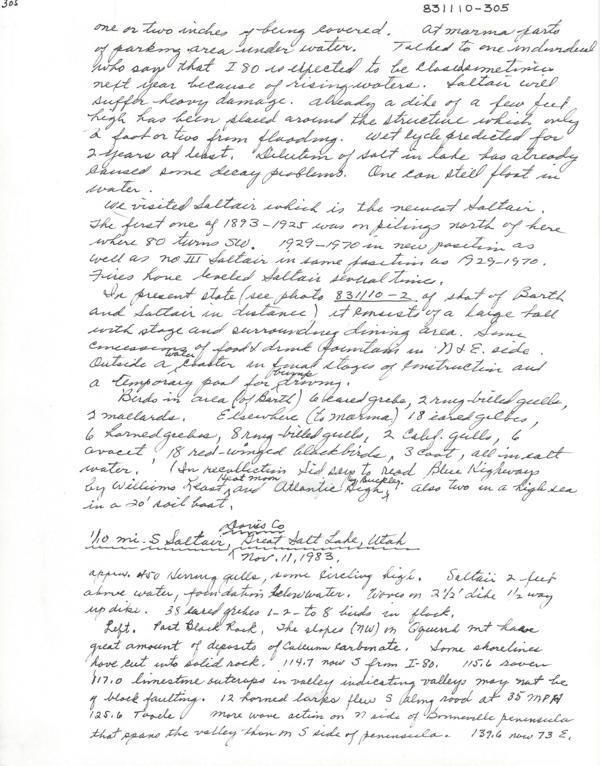 305
831110-305
one or two inches of being covered. At marina parts
of parking area under water. Talked to one individual
who says that I 80 is expected to be closed sometimes
next year because of rising waters. Saltair will
suffer heavy damage. Already a dike of a few feet
high has been placed around the structure which only
a foot or two from flooding. Wet cycle predicted for
2 years at least. Dilution of salt in lake has already
caused some decay problems. One can still float in
water.
We visited Saltair which is the newest Saltair.
The first one of 1893-1925 was on pilings north of here
where 80 turns SW. 1929-1970 in new position as
well as no III Saltair in same position as 1929-1970.
Fires have leveled Saltair several times.
In present state (see photo 831110-2 of shot of Barth
and Saltair in distance) it consists of a large hall
with stage and surrounding dining area. Some
concessions of food & drink fountain in N & E. side.
Outside a water coaster in final stages of construction and
a temporary pool for bump driving.
Birds in area (of Barth) 6 eared grebe, 2 ring-billed gulls,
2 mallards. Elsewhere (to marina) 18 eared grebes,
6 horned grebes, 8 ring-billed gulls, 2 Calif. gulls, 6
avocet, 18 red-winged blackbirds, 3 coot, all in salt
water. (In recollection Sid says to read Blue Highways
by William Least Heat Moon, and Atlantic High, by Buckley. Also two in a high sea
in a 20' sail boat.
1/10 mi. S Saltair, Davis Co Great Salt Lake, Utah
Nov. 11, 1983.
approx. 450 Herring gulls, some circling high. Saltair 2 feet
above water, foundation below water. Waves on 2 1/2' dike 1/2 way
up dike. 38 eared grebes 1-2-to 8 birds in flock.
Left. Past Black Rock, The slopes (NW) on Oquirrh mt have
great amount of deposits of Calcium Carbonate. Some shorelines
have cut into solid rock. 114.7 now S from I-80. 115.6 raven
117.0 limestone outcrops in valley indicating valleys may not be
of block faulting. 12 horned larks flew S along road at 35 MPH
125.6 Tooele. More wave action on N side of Bonneville peninsula
that spans the valley than on S side of peninsula. 139.6 now 73 E.